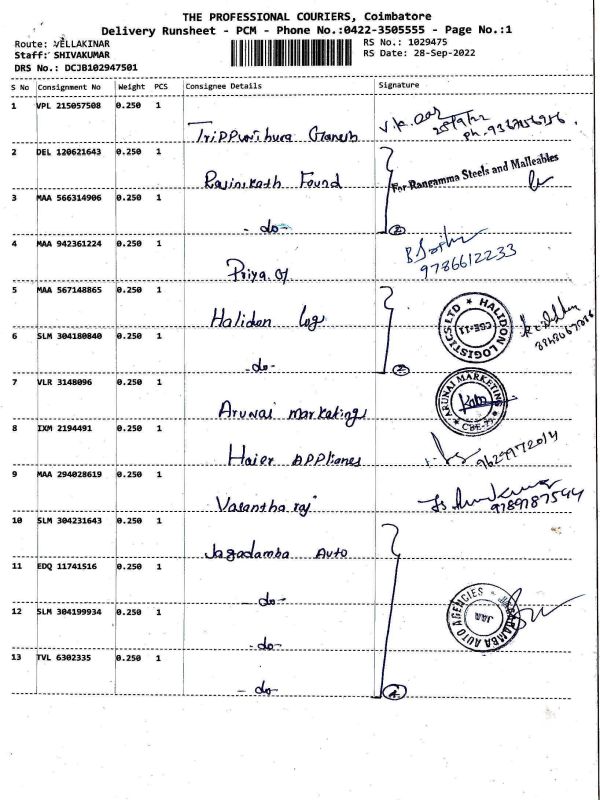 THE PROFESSIONAL COURIERS, Coimbatore
Delivery Runsheet - PCM - Phone No.:0422-3505555 - Page No.:1
Route: VELLAKINAR
RS No.: 1029475
Staff: SHIVAKUMAR
RS Date: 28-Sep-2022
DRS No.: DCJB102947501
S No Consignment No Weight PCS Consignee Details Signature
1 VPL 215057508 0.250 1
Trippunithura Ganesh
2 DEL 120621643 0.250 1
For Rangamma Steels and Malleables
Rajinikath Found
3 MAA 566314906 0.250 1
- do -
2
4 MAA 942361224 0.250 1
Priya G
9786612233
5 MAA 567148865 0.250 1
Halidon Log
HALIDON LOGISTICS LTD CBE-11
6 SLM 304180840 0.250 1
- do -
2
7 VLR 3148096 0.250 1
Arunai marketings
ARUNAI MARKETING CBE-77
8 IXM 2194491 0.250 1
Haier Applianes
9629972014
9 MAA 294028619 0.250 1
Vasantha raj
9789787594
10 SLM 304231643 0.250 1
Jagadamba Auto
11 EDQ 11741516 0.250 1
- do -
12 SLM 304199934 0.250 1
JAGADAMBA AUTO AGENCIES
- do -
13 TVL 6302335 0.250 1
- do -
4